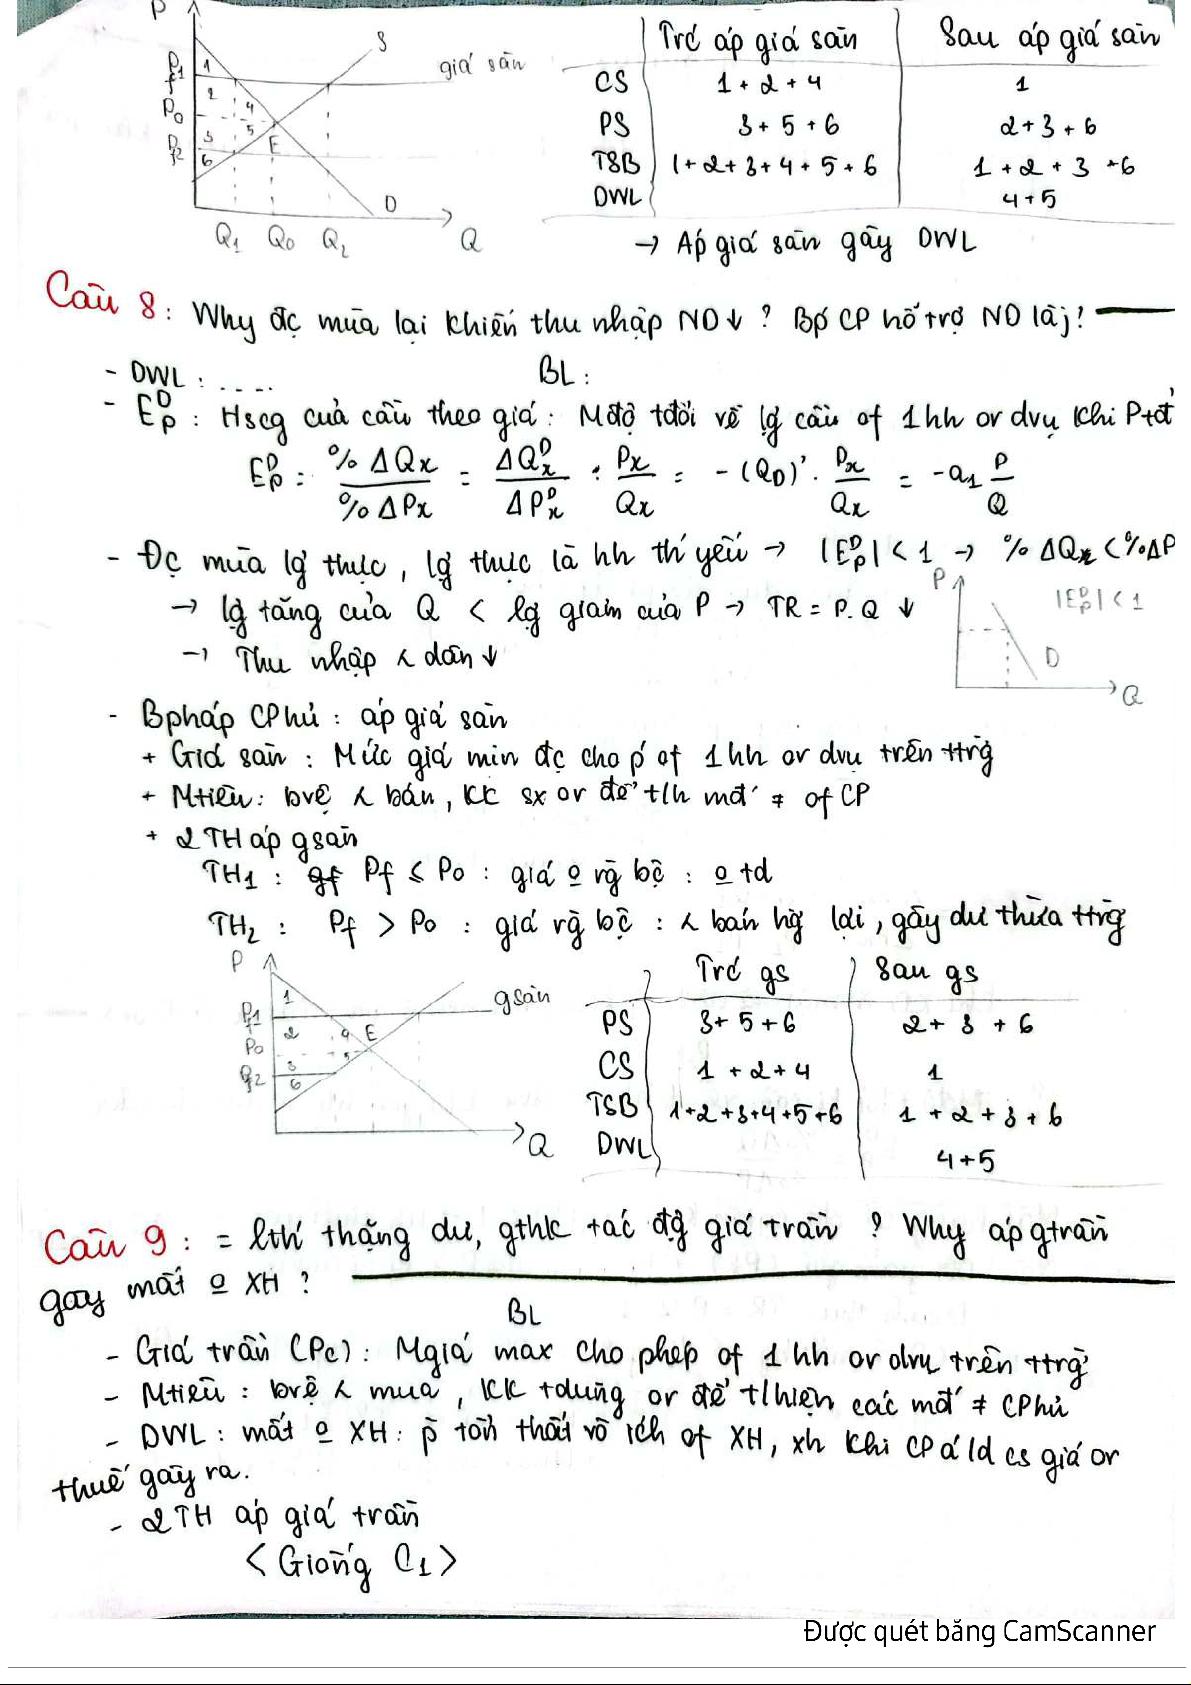 P
S
giá sàn
Pf1
P0
Pf2
1
2
4
3
5
6
E
D
Q1 Q0 Q2 Q
Trc áp giá sàn Sau áp giá sàn
CS 1+2+4 1
PS 3+5+6 2+3+6
TSB 1+2+3+4+5+6 1+2+3+6
DWL 4+5
→ Áp giá sàn gây DWL
Câu 8: Why đc mùa lại khiến thu nhập ND↓? Bp CP hỗ trợ ND là j!
- DWL: .... BL:
- E_P^D: Hscg của cầu theo giá: Mđộ tđổi về lg cầu of 1 hh or dvụ khi P tđ
E_P^D = %ΔQx / %ΔPx = ΔQ_x^D / ΔP_x^D : Px / Qx = -(QD)'. Px / Qx = -a1 P / Q
- Đc mùa lg thực, lg thực là hh th' yếu → |E_P^D| < 1 → %ΔQx < %ΔP
→ lg tăng của Q < lg giảm của P → TR = P.Q ↓
→ Thu nhập < dân ↓
P
|E_P^D| < 1
D
Q
- Bpháp CPhủ: áp giá sàn
+ Giá sàn: Mức giá min đc cho p' of 1 hh or dvụ trên ttrg
+ Mtiêu: bvệ < bán, KK sx or để t/h mđ' ≠ of CP
+ 2 TH áp gsàn
TH1: Pf ≤ P0: giá o rg bc: o td
TH2: Pf > P0: giá rg bc: < bán hg lợi, gây dư thừa ttrg
P
gsàn
Pf1
P0
Pf2
1
2
4
E
3
5
6
Q
Trc gs Sau gs
PS 3+5+6 2+3+6
CS 1+2+4 1
TSB 1+2+3+4+5+6 1+2+3+6
DWL 4+5
Câu 9: = lth' thặng dư, gthk tác đg giá trần? Why áp gtrần
gây mất o XH?
BL
- Giá trần (Pc): Mgiá max cho phép of 1 hh or dvu trên ttrg
- Mtiêu: bvệ < mua, KK tdùng or để t/hiện các mđ' ≠ CPhủ
- DWL: mất o XH: p tổn thất vô ích of XH, xh khi CP á/d cs giá or
thuế gây ra.
- 2 TH áp giá trần
<Giống C1>
Được quét bằng CamScanner